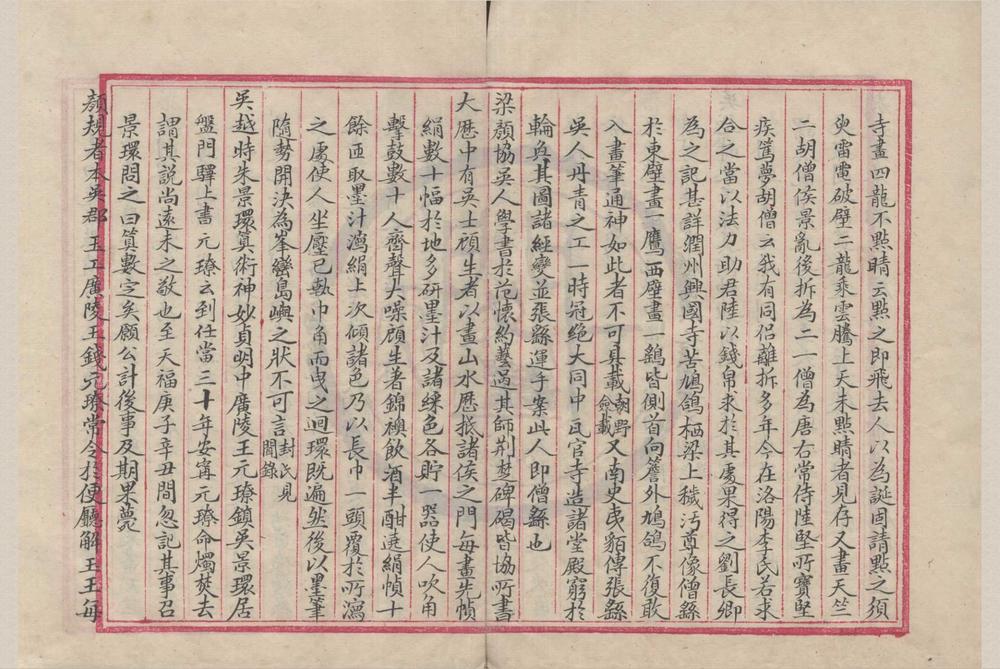 寺畫四龍不點睛云點之即飛去人以為誕固請點之須
臾雷電破壁二龍乘雲騰上天未點睛者見存又畫天竺
二胡僧侯景亂後拆為二一僧為唐右常侍陸堅所寶堅
疾篤夢胡僧云我有同侶離拆多年今在洛陽李氏若求
合之當以法力助君陸以錢帛求於其處果得之劉長卿
為之記甚詳潤州興國寺苦鳩鴿栖梁上穢汚尊像僧繇
於東壁畫一鷹西壁畫一鷂皆側首向簷外鳩鴿不復敢
入畫筆通神如此者不可具載朝野僉載又南史夷貊傳張繇
吳人丹青之工一時冠絕大同中瓦官寺造諸堂殿窮於
輪奐其圖諸經變並張繇運手案此人即僧繇也
梁顏協吳人學書於范懷約藝過其師荆楚碑碣皆協所書
大厯中有吳士頋生者以畫山水厯抵諸侯之門每畫先幀
絹數十幅於地多研墨汁及諸綵色各貯一器使人吹角
擊鼓數十人齊聲大噪頋生著錦襖飲酒半酣遶絹幀十
餘匝取墨汁瀉絹上次傾諸色乃以長巾一頭覆於所瀉
之處使人坐壓己執巾角而曳之迴環既遍然後以墨筆
隨勢開決為峯巒島嶼之狀不可言封氏見聞錄
吳越時朱景環筭術神妙貞明中廣陵王元璙鎖吳景環居
盤門驛上書元璙云到任當三十年安寗元璙命燭焚去
謂其說尚遠未之敬也至天福庚子辛丑間忽記其事召
景環問之曰筭數定矣願公計後事及期果薨
顏規者本吳郡玉工廣陵王錢元璙常令於便廳解玉王每